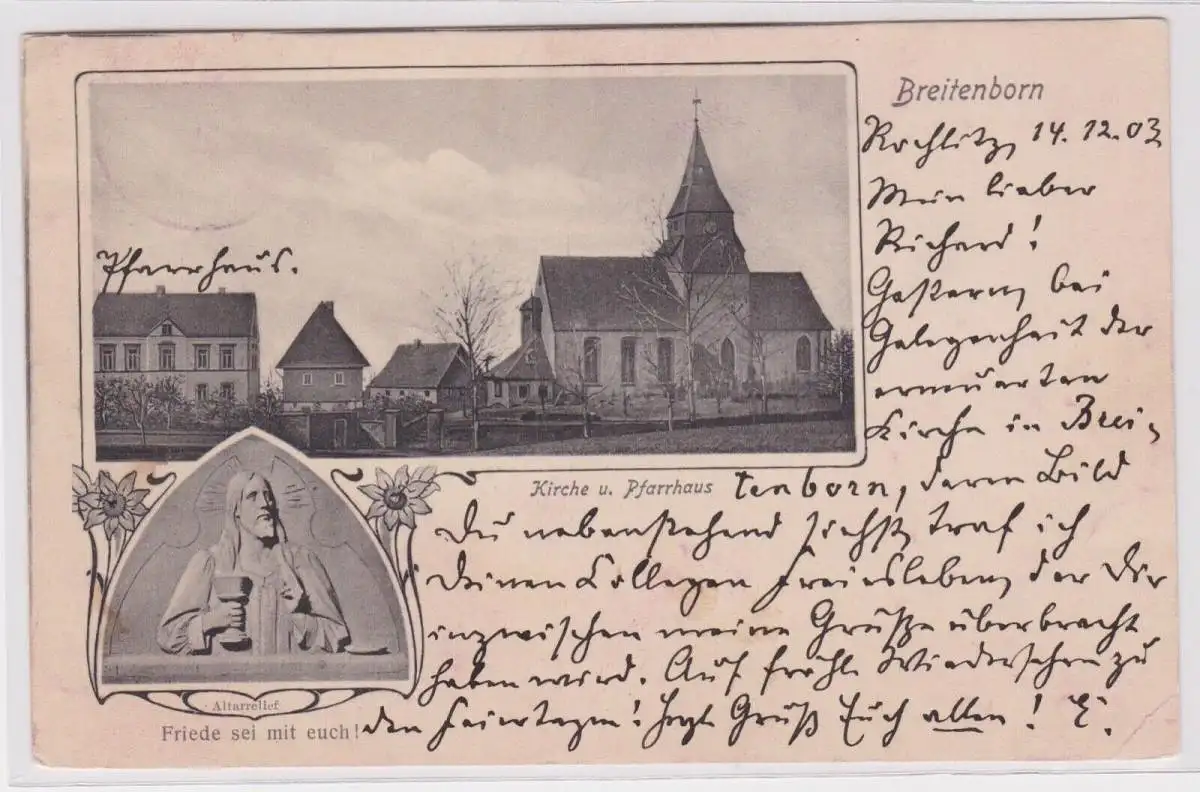 Breitenborn
Rochlitz, 14.12.03
Mein lieber
Richard!
Gestern, bei
Gelegenheit der
erneuerten
Kirche in Brei-
Pfarrhaus.
Kirche u. Pfarrhaus
tenborn, deren Bild
Du nebenstehend siehst, traf ich
Deinen Collegen Freiesleben, der Dir
inzwischen meine Grüße überbracht
haben wird. Auf fröhl. Wiedersehen zu
den Feiertagen! Hrzl. Gruß Euch allen! E.
Altarrelief
Friede sei mit euch!